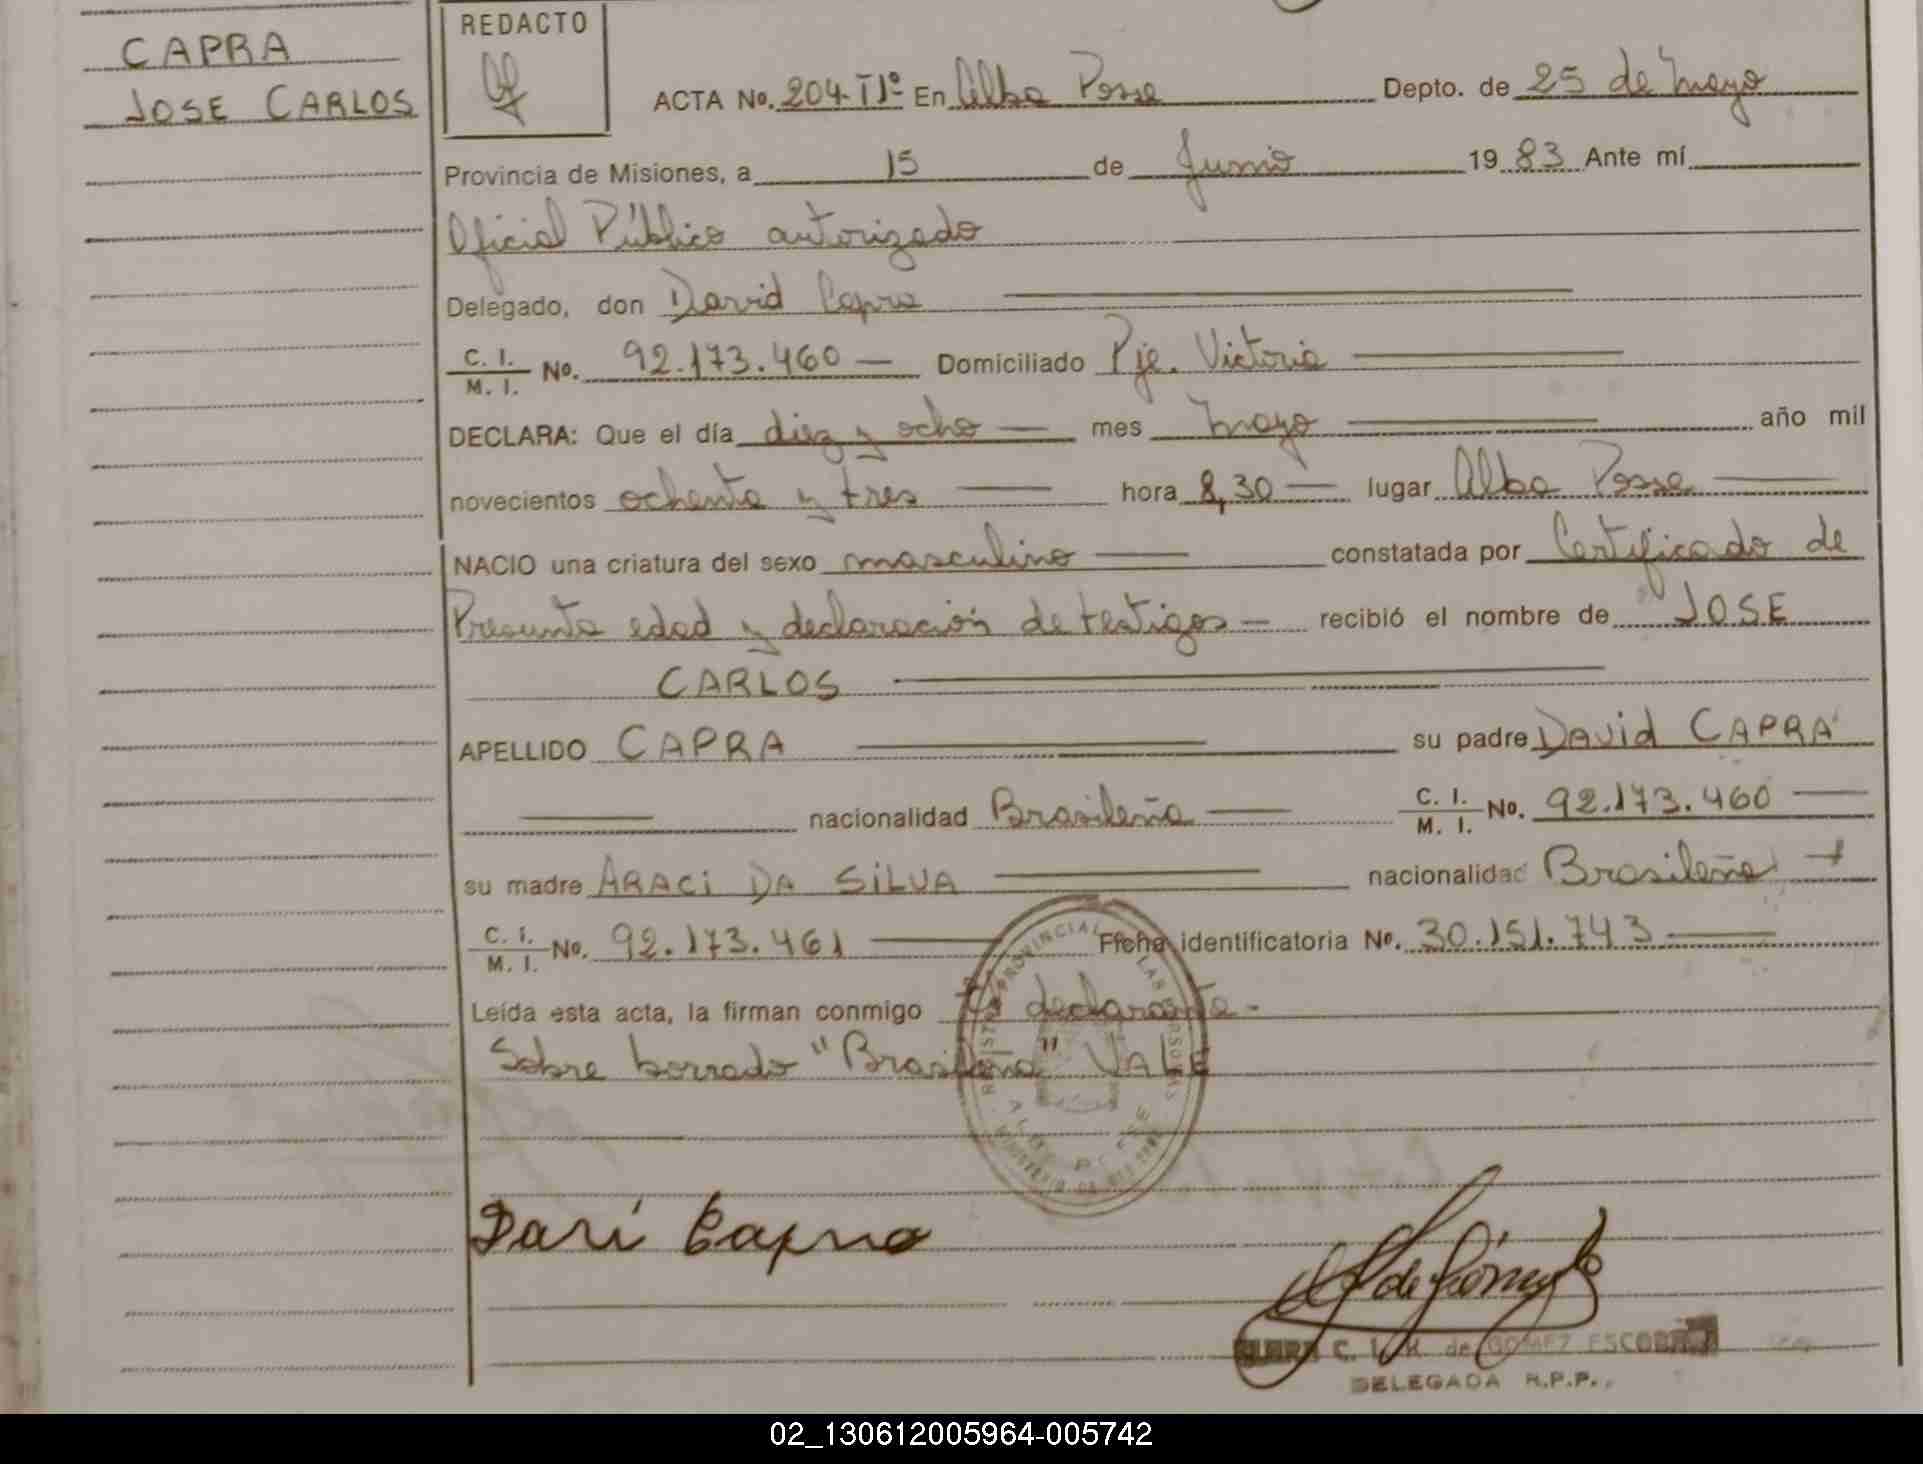 CAPRA
JOSE CARLOS
REDACTO
ACTA No. 204-Tº1º En Alba Posse Depto. de 25 de Mayo
Provincia de Misiones, a 15 de Junio 1983 Ante mí
Oficial Público autorizado
Delegado, don David Capra
C. I. / M. I. No. 92.173.460 — Domiciliado Pje. Victoria
DECLARA: Que el día diez y ocho — mes Mayo año mil
novecientos ochenta y tres — hora 8,30 — lugar Alba Posse —
NACIO una criatura del sexo masculino — constatada por Certificado de
Presunta edad y declaración de testigos — recibió el nombre de JOSE
CARLOS
APELLIDO CAPRA su padre David CAPRA
nacionalidad Brasileña — C. I. / M. I. No. 92.173.460 —
su madre ARACI DA SILVA nacionalidad Brasileña
C. I. / M. I. No. 92.173.461 — Ficha identificatoria No. 30.151.743 —
Leída esta acta, la firman conmigo declarante -
Sobre borrado "Brasileña" VALE
REGISTRO PROVINCIAL DE LAS PERSONAS
Davi Capra
C. I. K. de GOMEZ ESCOBAR
DELEGADA R.P.P.
02_130612005964-005742